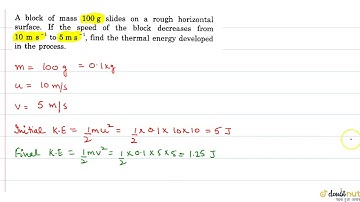 A block of mass 100 g slides on a rough horizontal
surface. If the speed of the block decreases from
10 m s⁻¹ to 5 m s⁻¹, find the thermal energy developed
in the process.
m = 100 g = 0.1 kg
u = 10 m/s
v = 5 m/s
Initial K.E = 1/2 mu² = 1/2 × 0.1 × 10 × 10 = 5 J
Final K.E = 1/2 mv² = 1/2 × 0.1 × 5 × 5 = 1.25 J
doubtnut